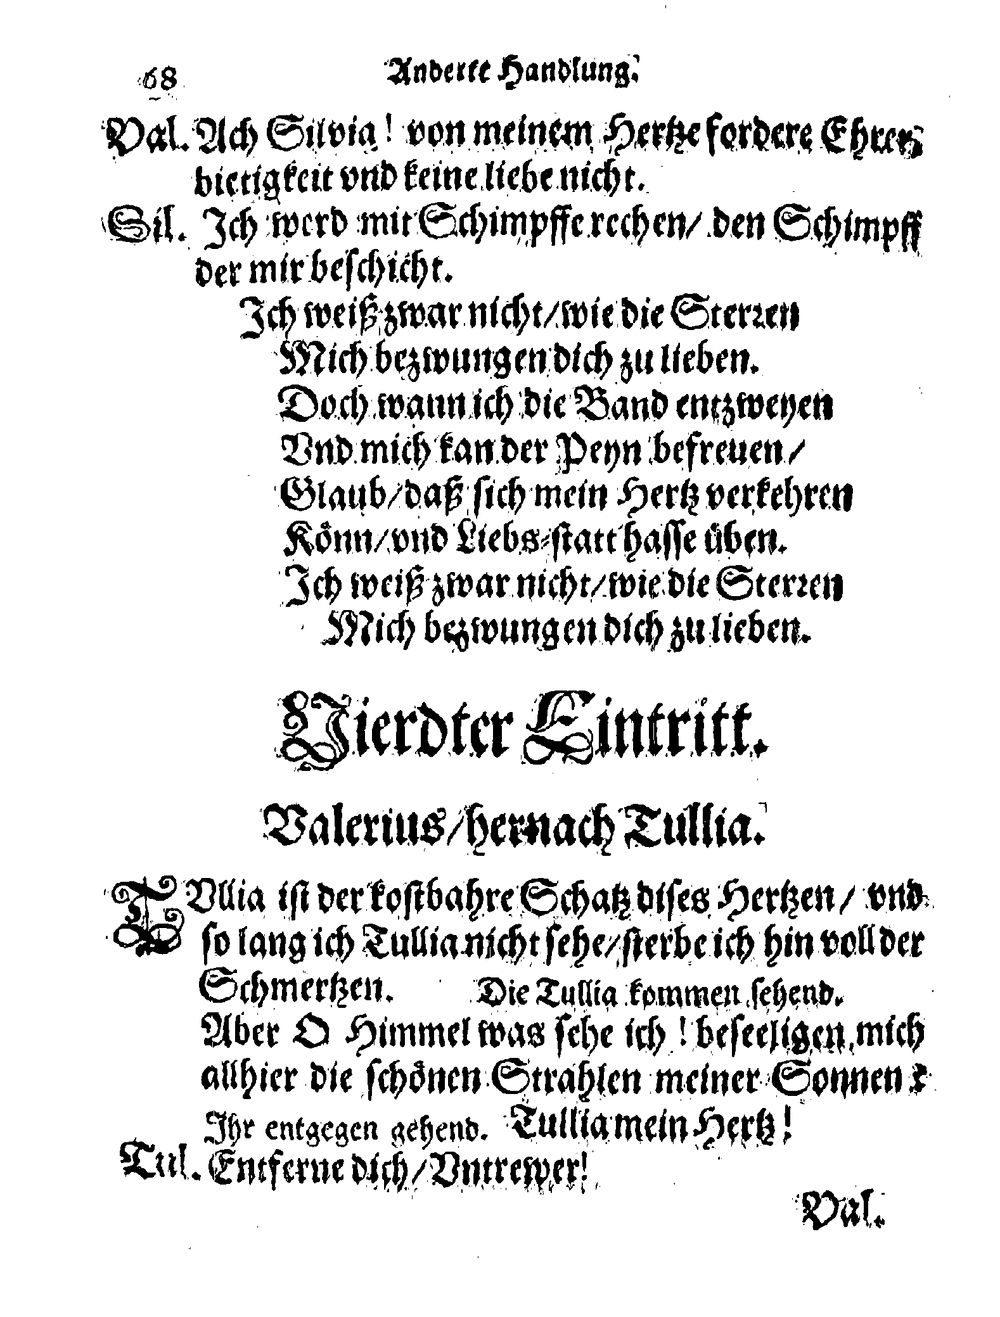 68 Anderte Handlung.
Val. Ach Silvia! von meinem Hertze fordere Ehren-
bietigkeit vnd keine liebe nicht.
Sil. Ich werd mit Schimpffe rechen/ den Schimpff
der mir beschicht.
Ich weiß zwar nicht/ wie die Sterren
Mich bezwungen dich zu lieben.
Doch wann ich die Band entzweyen
Vnd mich kan der Peyn befreuen/
Glaub/ daß sich mein Hertz verkehren
Könn/ vnd Liebs-statt hasse üben.
Ich weiß zwar nicht/ wie die Sterren
Mich bezwungen dich zu lieben.
Vierdter Eintritt.
Valerius/ hernach Tullia.
TVllia ist der kostbahre Schatz dises Hertzen/ vnd
so lang ich Tullia nicht sehe/ sterbe ich hin voll der
Schmertzen. Die Tullia kommen sehend.
Aber O Himmel was sehe ich! beseeligen mich
allhier die schönen Strahlen meiner Sonnen?
Ihr entgegen gehend. Tullia mein Hertz!
Tul. Entferne dich/ Vntrewer!
Val.